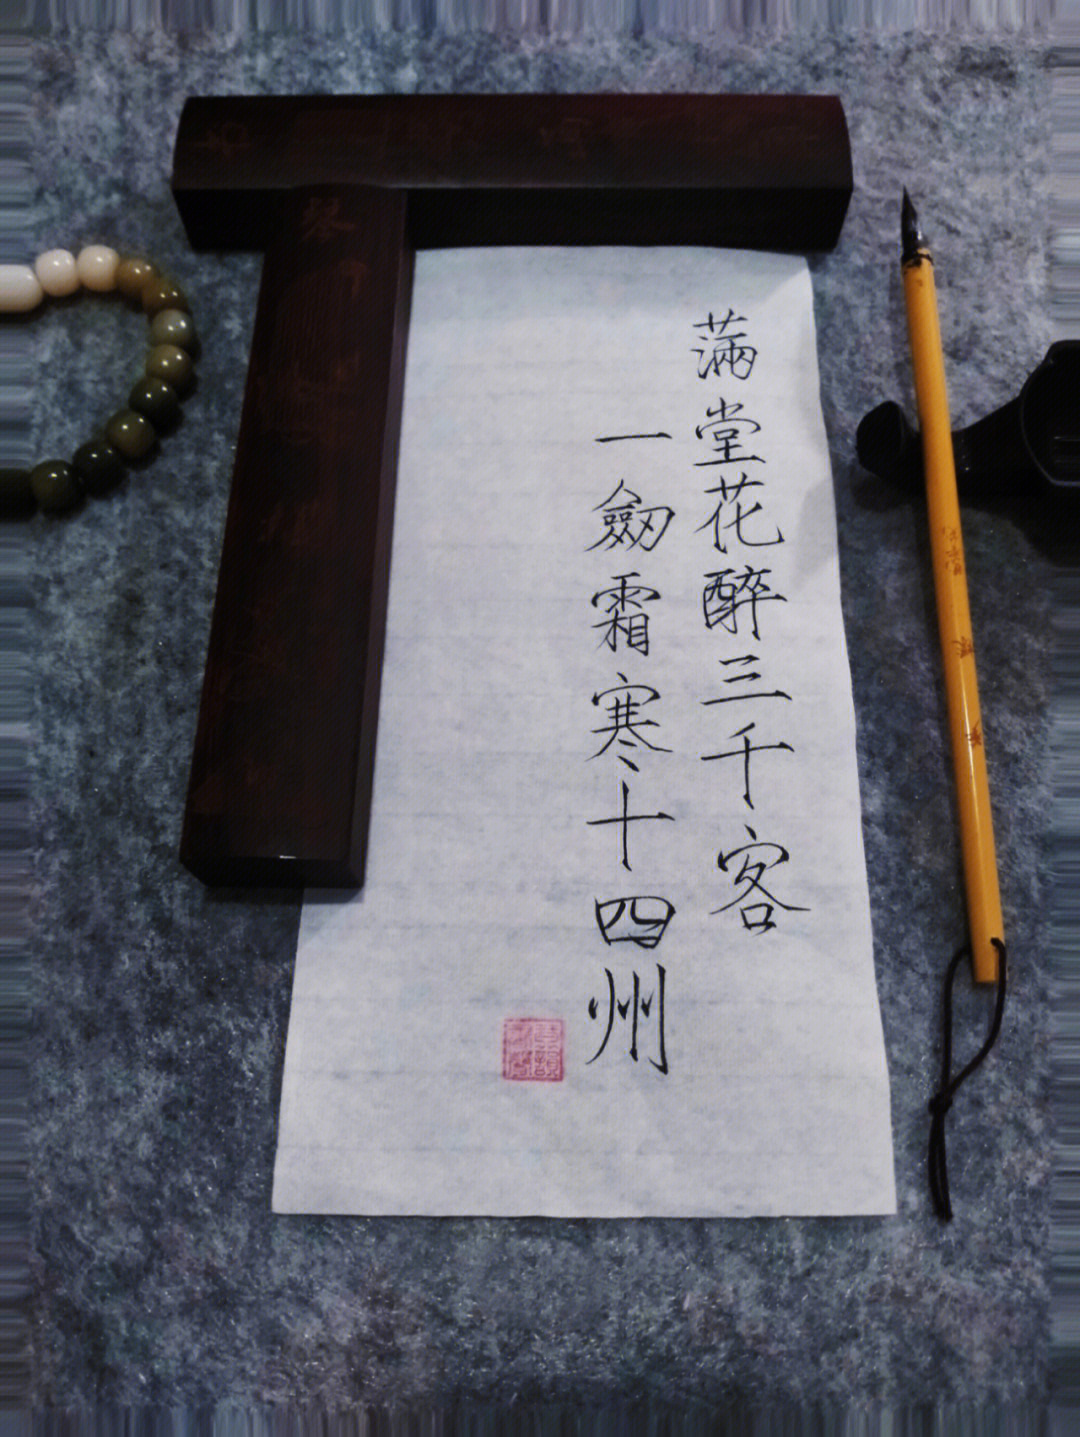 滿堂花醉三千客
一劒霜寒十四州